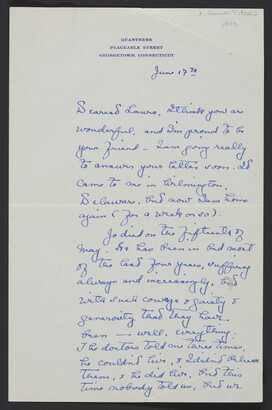 QUANTNESS
PEACEABLE STREET
GEORGETOWN, CONNECTICUT
June 17th
Dearest Laura, I think you are
wonderful, and I'm proud to be
your friend - I am going really
to answer your letter soon. It
came to me in Wilmington,
Delaware. And now I am home
again (for a week or so).
Jo died on the fifteenth of
May. He has been in bed most
of the last four years, suffering
always and increasingly, but
with such courage & gaiety &
generosity that they have
been — well, everything.
The doctors told me three times,
he couldn't live, & I didn't believe
them, & he did live. And this
time nobody told us, but we